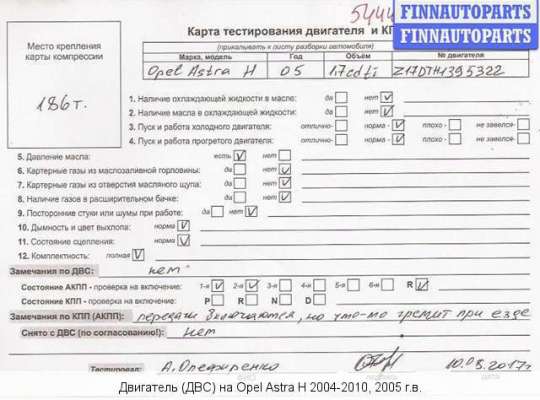 5444
FINNAUTOPARTS
FINNAUTOPARTS
Карта тестирования двигателя и КП
(прикалывать к листу разборки автомобиля)
Место крепления
карты компрессии
186т.
Марка, модель Год Объём № двигателя
Opel Astra H 05 1.7cdti Z17DTH1395322
1. Наличие охлаждающей жидкости в масле: да нет
2. Наличие масла в охлаждающей жидкости: да нет
3. Пуск и работа холодного двигателя: отлично- норма - плохо - не завелся-
4. Пуск и работа прогретого двигателя: отлично- норма - плохо - не завелся-
5. Давление масла: есть нет
6. Картерные газы из маслозаливной горловины: да нет
7. Картерные газы из отверстия масляного щупа: да нет
8. Наличие газов в расширительном бачке: да нет
9. Посторонние стуки или шумы при работе: да нет
10. Дымность и цвет выхлопа: норма
11. Состояние сцепления: норма
12. Комплектность: полная
Замечания по ДВС: нет
Состояние АКПП - проверка на включение: 1-я 2-я 3-я 4-я 5-я 6-я R
Состояние КПП - проверка на включение: P R N D
Замечания по КПП (АКПП): передачи включаются, но что-то гремит при езде
Снято с ДВС (по согласованию!): нет
Тестировал: А.Олефиренко 10.08.2017г.
Двигатель (ДВС) на Opel Astra H 2004-2010, 2005 г.в.